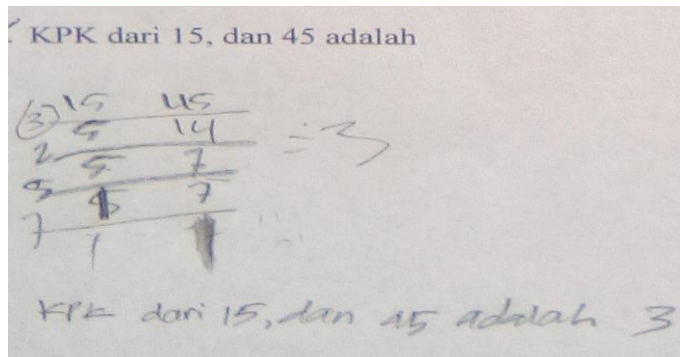 KPK dari 15, dan 45 adalah
③ 15 45
2 5 14 = 3
5 5 7
7 1 7
1 1
KPK dari 15, dan 45 adalah 3